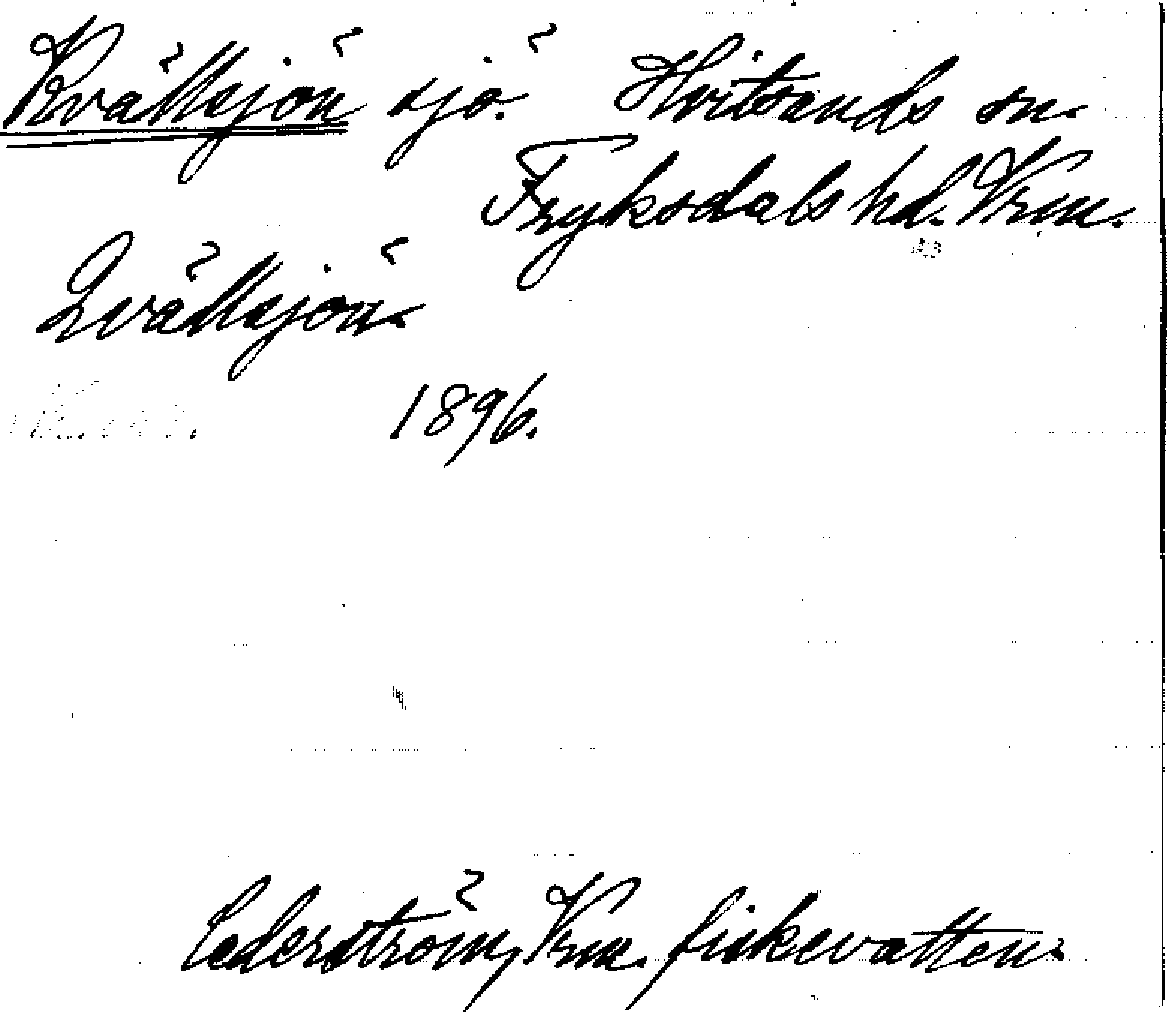 Kvällsjön sjö. Hvitsands sn.
Fryksdals hd. Vrm.
Qvällsjön
1896.
Cederström, Vrm. fiskevatten.